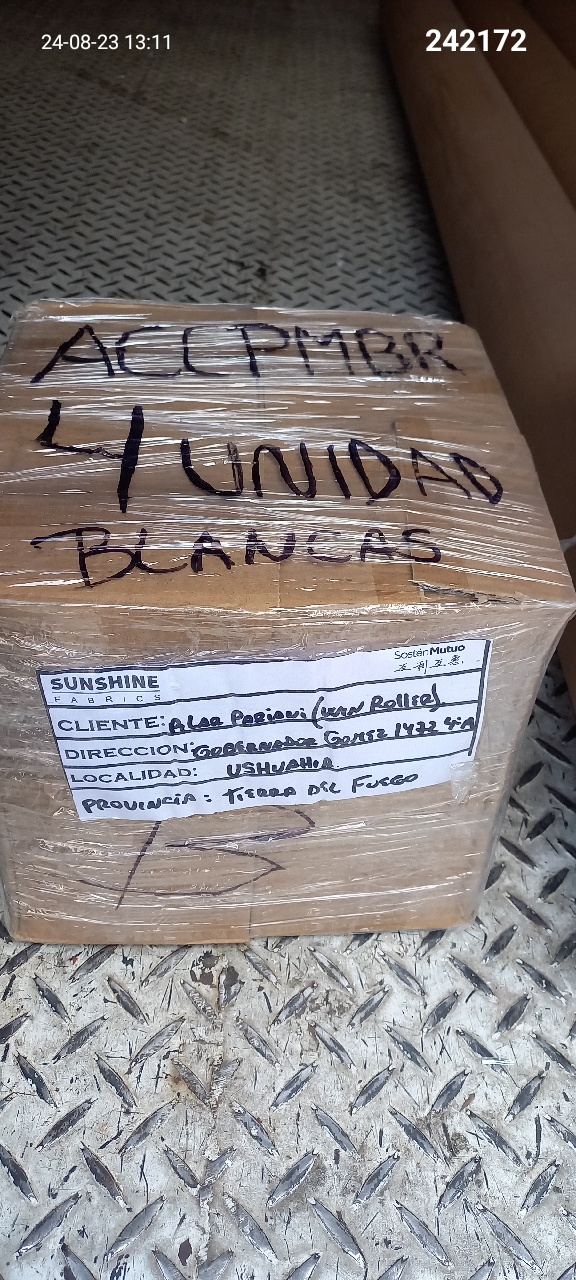 24-08-23 13:11
242172
ACCPMBR
4 UNIDAD
BLANCAS
Sostén Mutuo
互利互惠
SUNSHINE
FABRICS
CLIENTE: (WIN Roller)
DIRECCION: GOBERNADOR GOMEZ 1472 4ºA
LOCALIDAD: USHUAHIA
PROVINCIA: TIERRA DEL FUEGO